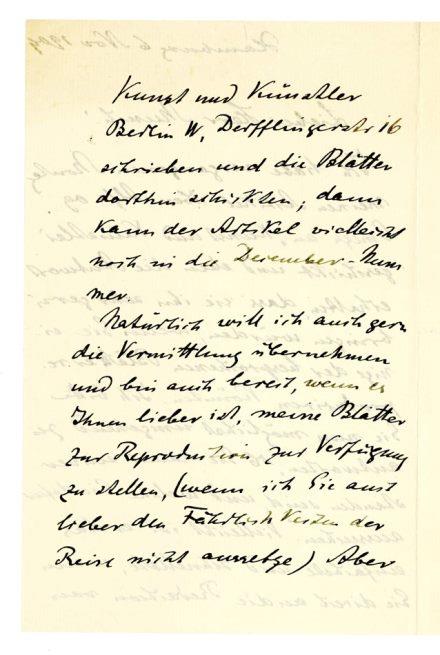 Kunst und Künstler
Berlin W, Derfflingerstr 16
schrieben und die Blätter
dorthin schickten, dann
kann der Artikel vielleicht
noch in die Dezember-Num
mer.
Natürlich will ich auch gern
die Vermittlung übernehmen
und bin auch bereit, wenn es
Ihnen lieber ist, meine Blätter
zur Reproduktion zur Verfügung
zu stellen, (wenn ich Sie auch
lieber den Fährlichkeiten der
Reise nicht aussetze) Aber